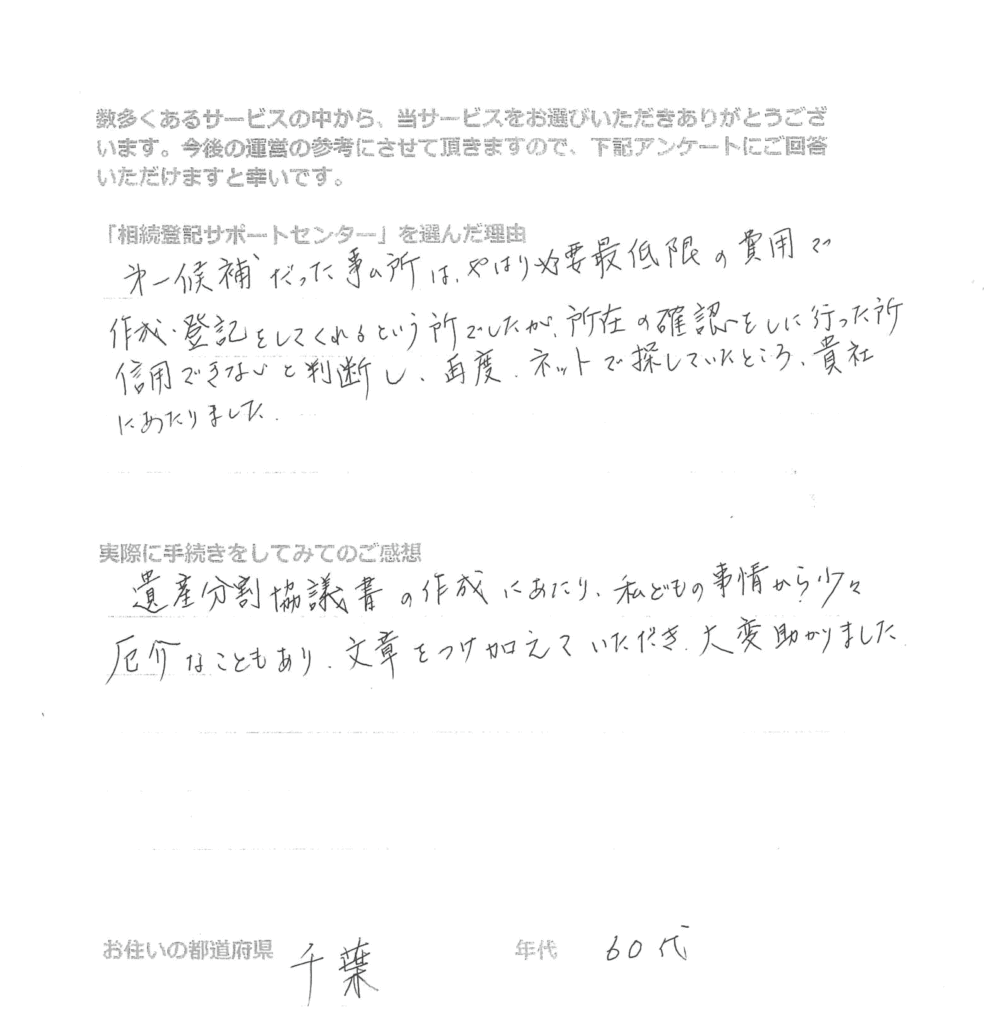 数多くあるサービスの中から、当サービスをお選びいただきありがとうござ
います。今後の運営の参考にさせて頂きますので、下記アンケートにご回答
いただけますと幸いです。
「相続登記サポートセンター」を選んだ理由
第一候補だった事ム所は、やはり必要最低限の費用で
作成・登記をしてくれるという所でしたが、所在の確認をしに行った所
信用できないと判断し、再度、ネットで探していたところ、貴社
にあたりました。
実際に手続きをしてみてのご感想
遺産分割協議書の作成にあたり、私どもの事情から少々
厄介なこともあり、文章をつけ加えていただき、大変助かりました
お住いの都道府県 千葉 年代 60代